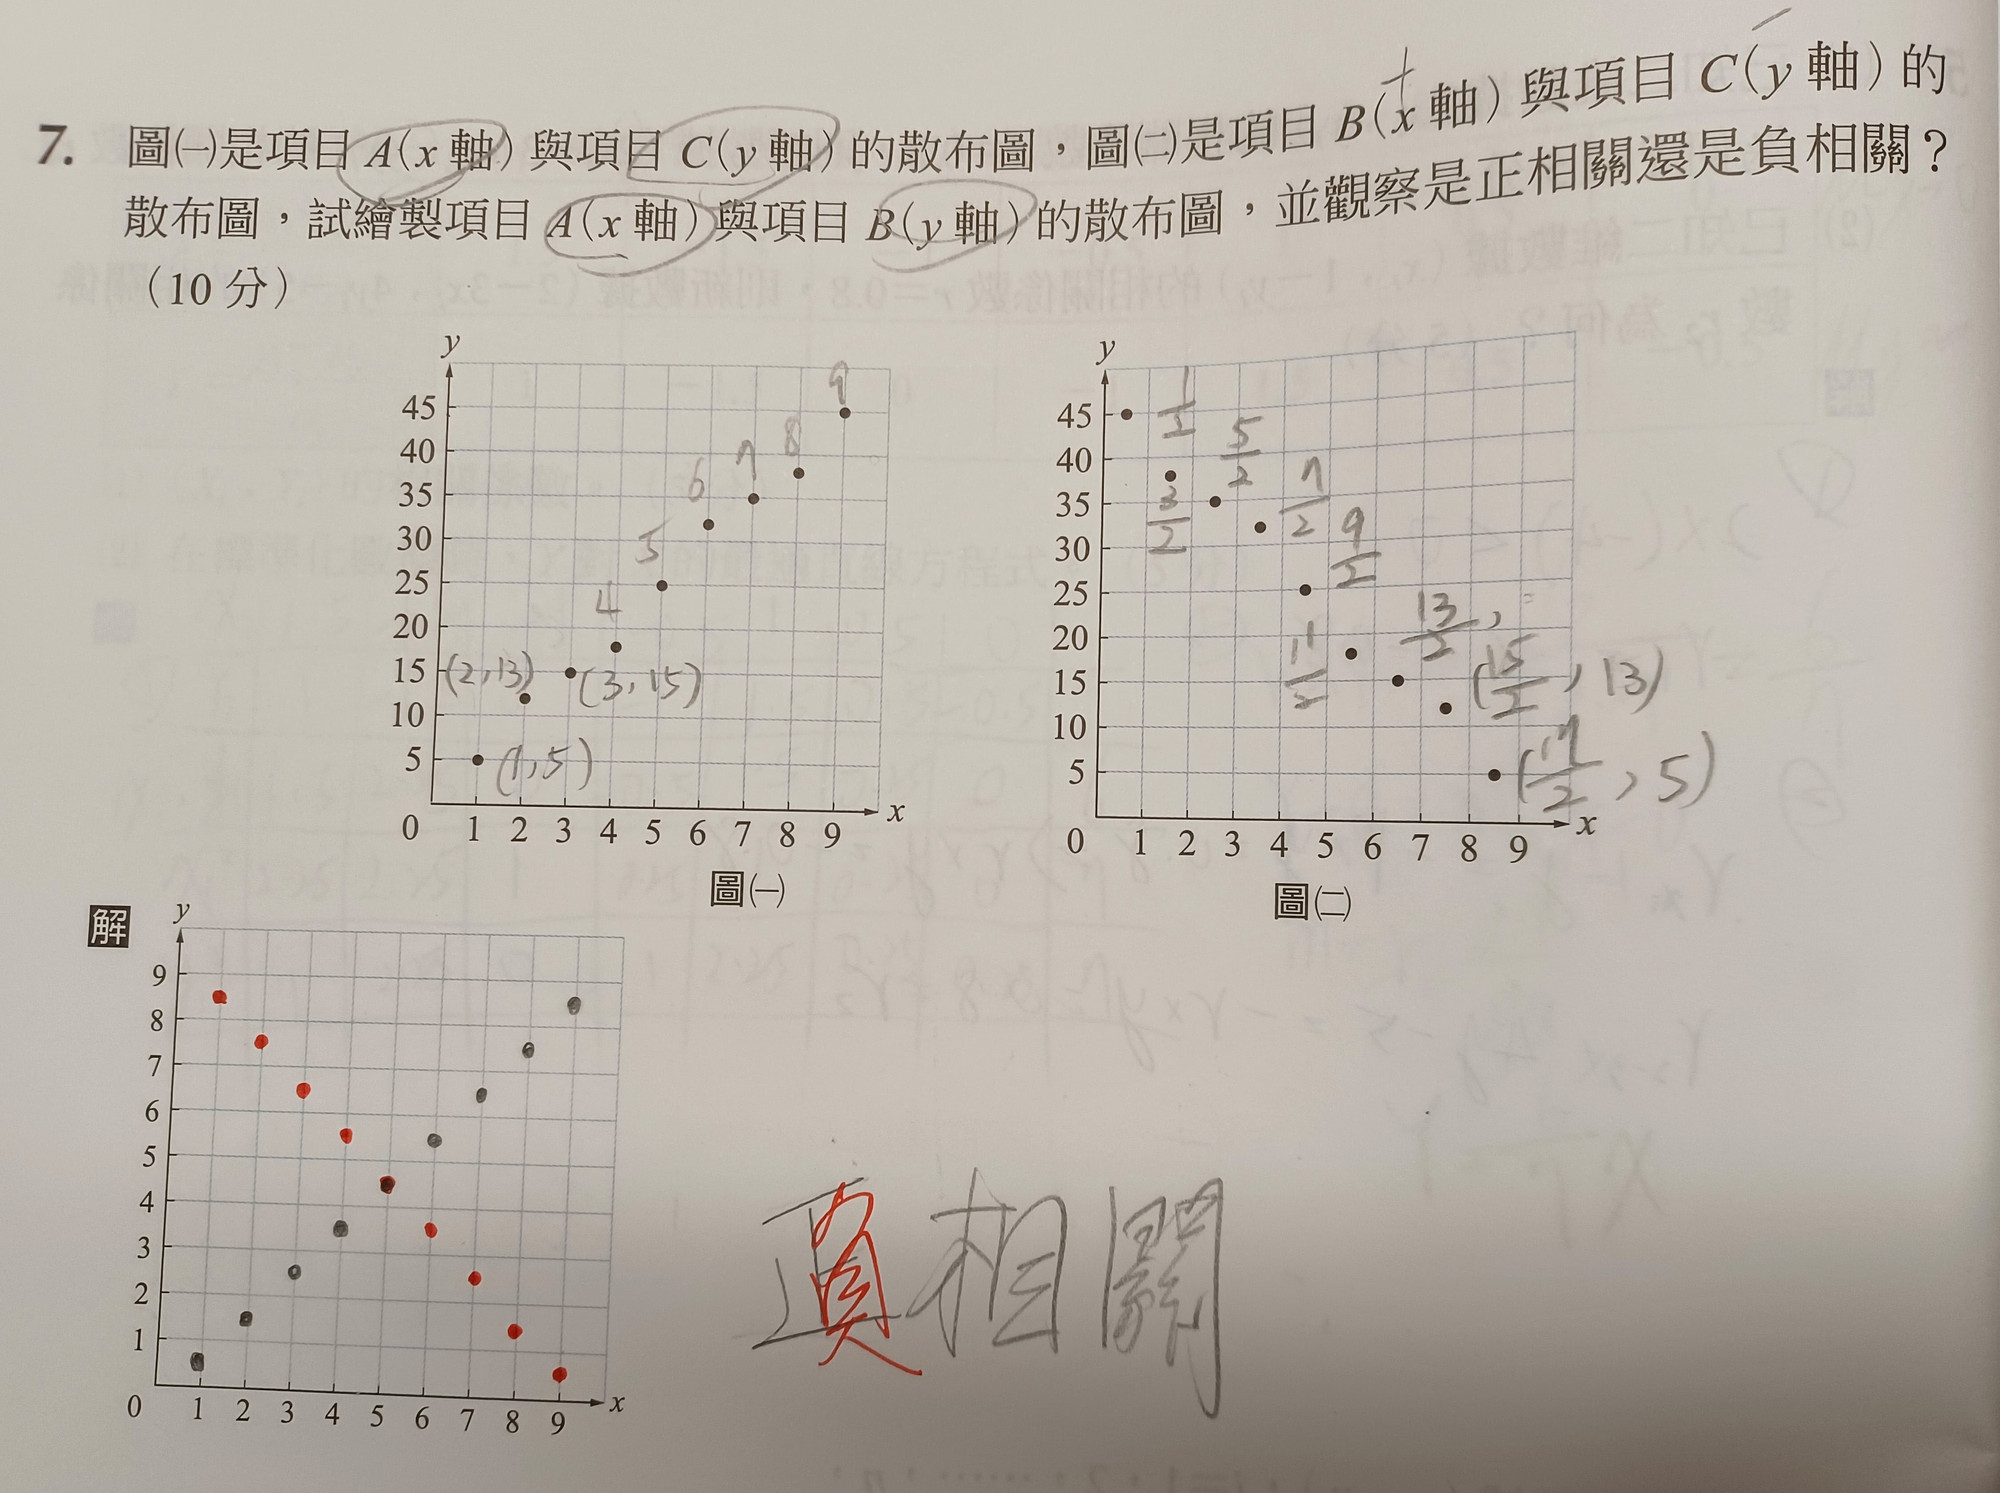 7. 圖㈠是項目 A(x 軸) 與項目 C(y 軸) 的散布圖，圖㈡是項目 B(x 軸) 與項目 C(y 軸) 的
散布圖，試繪製項目 A(x 軸) 與項目 B(y 軸) 的散布圖，並觀察是正相關還是負相關？
（10 分）
y
45
40
35
30
25
20
15
10
5
0 1 2 3 4 5 6 7 8 9 x
(1,5)
(2,13)
(3,15)
4
5
6
7
8
9
圖㈠
y
45
40
35
30
25
20
15
10
5
0 1 2 3 4 5 6 7 8 9 x
1/2
3/2
5/2
7/2
9/2
11/2
13/2,
(15/2, 13)
(17/2, 5)
圖㈡
解
y
9
8
7
6
5
4
3
2
1
0 1 2 3 4 5 6 7 8 9 x
相關